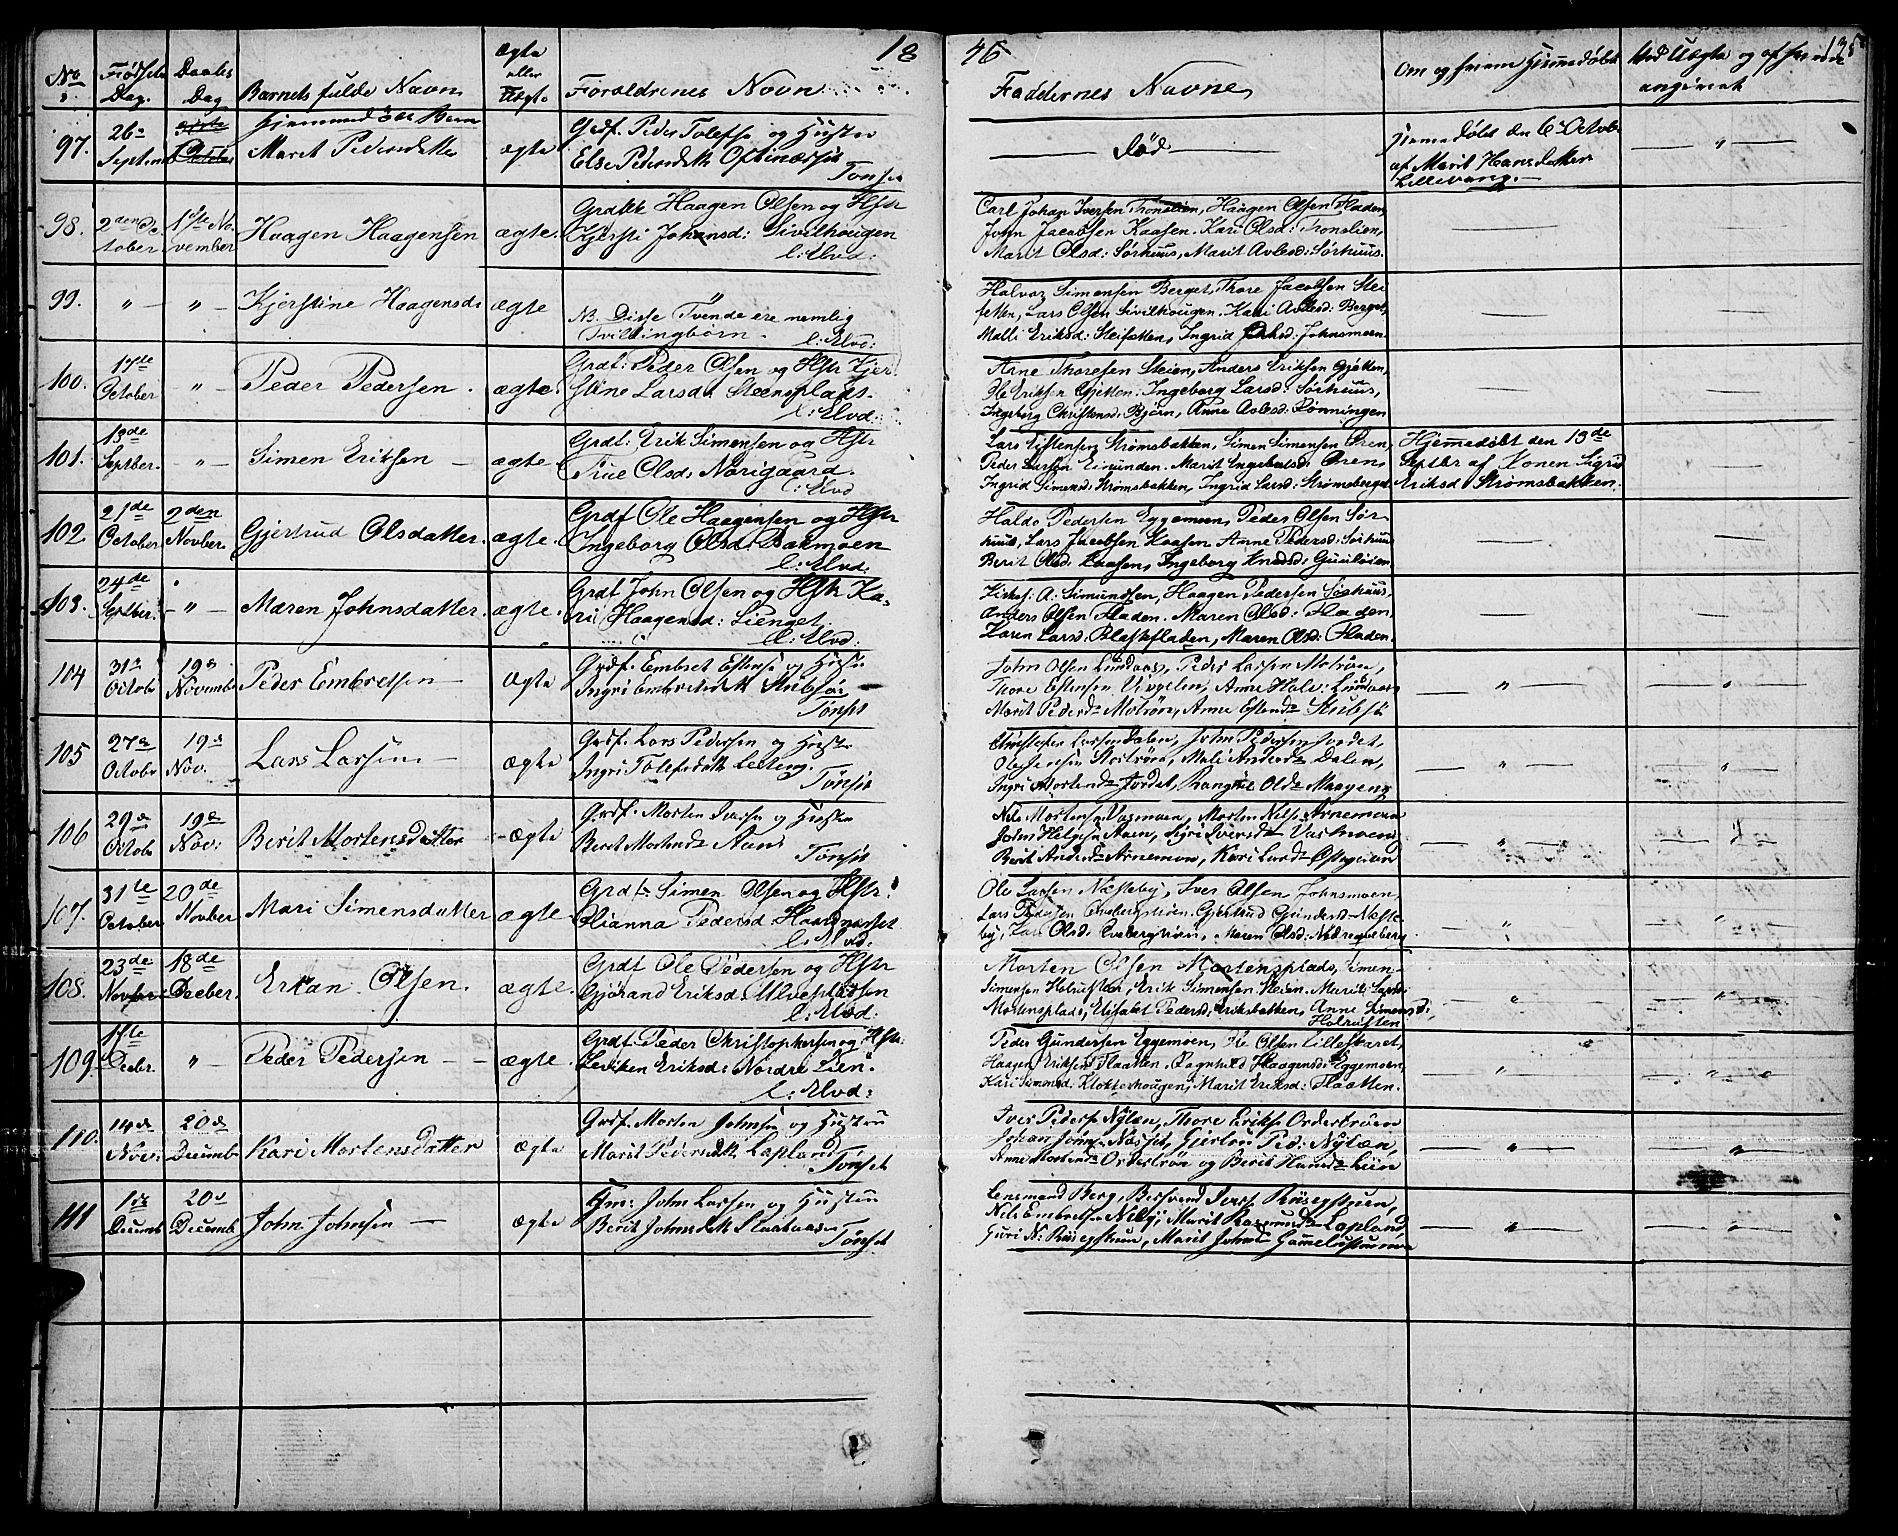 18
46
135
No
Fødsels Dag.
Daabs Dag
Barnets fulde Navn
Ægte eller Uægte
Forældrenes Navn
Faddernes Navne
Om og hvem Hjemmedøbt
97.
26de Septem
October
Hjemmedøbt Barn
Marit Pedersdatter
ægte
Grdf. Peder Tolefse og Hustru
Else Pedersdtt
Tønset
død
Hjemmedøbt den 6 Octob.
af Marit Hansdatter
Lillevang.
— " —
98.
2den October
1ste November
Haagen Haagensen
ægte.
Haagen Olsen og Hstr
Kjersti Johansd: Sivilhougen
l: Elvd:
Carl Johan Iversen Tronslien, Haagen Olsen Fladen,
John Jacobsen Kaasen. Kari Olsd: Tronslien,
Marit Olsd: Sørhuus, Marit Avlesd: Sørhuus.
99.
" —
— " —
Kjerstine Haagensd:
ægte
NB. Disse Tvende ere nemlig
Tvillingbørn.
l: Elvd:
Halvor Simensen Berget, Thore Jacobsen Stei-
fetten, Lars Olsen Sivilhougen. Kari Avlesd: Berget,
Malli Eriksd: Steifetten, Ingrid Johnsmoen
100.
17de October
— " —
Peder Pedersen.
ægte.
Grdf: Peder Olsen og Hstr Kjer-
stine Larsd: Steensplads.
l: Elvd:
Arne Thoresen Steien, Anders Eriksen Gjetten,
Ole Eriksen Gjetten. Ingeborg Larsd: Sørhuus,
Ingeborg Christensd: Bjørn, Anne Aslesd: Rønningen
101.
13de Septber.
— " —
Simen Eriksen
ægte
Grdf: Erik Simensen og Hstr
Olsd: Norigaard.
l: Elvd
Lars Estensen Strømsbakken, Simen Simensen Øren,
Peder Larsen Eimunden. Marit Ingebretsd: Øren,
Ingrid Simensd: Strømsbakken, Ingrid Larsd: Strømsberget
Hjemmedøbt den 13de
Septbr af Konen Sigrid
Eriksd: Strømsbakken.
102
21de October
2den Novber.
Gjertrud Olsdatter.
ægte.
Grdf Ole Haagensen og Hstr
Ingeborg Olsd: Bakmoen
l: Elvd:
Haldo Pedersen Eggemoen, Peder Olsen Sør-
huus, Lars Jacobsen Kaasen Anne Pedersd: Sørhuus
Berit Olsd: Kaasen, Ingeborg Knudsd:
103.
24de Septber.
— " —
Maren Johnsdatter.
ægte.
Grdf John Olsen og Hstr Ka-
ri Haagensd: Lienget.
l: Elvd:
A: Simundsen, Haagen Pedersen Sørhuus,
Anders Olsen Fladen. Maren Olsd: Fladen,
Karen Larsd: Blaskefladen, Maren Olsd: Fladen.
104
31te Octob
19de Novemb
Peder Embretsen —
Ægte
Grdf. Embret Estense og Hustru
Ingri Embretsdtt Stubsøi
Tønset
John Olsen Lundaas, Peder Larsen Motrøn,
Thore Estensen Vingelen, Anne Halv: Lundaas
Marit Pedersdr Motrøn, Anne Estendr Stubsø
— " —
105
27de Octobr
19de Nov.
Lars Larsen —
Ægte
Grdf. Lars Pedersen og Hustru
Ingri Tolefsdtt Leeteng.
Tønset
Christofer Larsen Dalen, John Pedersen Jordet,
Ole Jensen Mostrøn, Mali Andersdr Dalen,
Ingri Mortensdr Jordet, Rangnil Olsdr Maageng
— " —
106
29de Octob
19de Nov:
Berit Mortensdatter
— Ægte
Grdf. Morten Iversen og Hustru
Berit Mortensdr Aaen
Tønset
Nils Mortensen Vasmoen, Morten Nilse Arnemoen
John Helgesen Aaen, Sigri Iversdr Vasmoen,
Berit Andersdr Arnemoen, Kari Larsdr
— " —
107.
31te October
20de Novber
Mari Simensdatter
ægte.
Grdf: Simen Olsen og Hstr
Olianna Pedersd Haarnæsset
l: Elvd:
Ole Larsen Næsteby, Iver Olsen Johnsmoen,
Lars Pedersen Gjertrud Gundersd: Næste-
by, Kari Olsd: Maren Olsd:
— " —
108.
23de Novber
18de Decber.
Olsen.
ægte.
Grdf Ole Pedersen og Hstr
Gjørand Eriksd: Ulvepladsen
l: Elvd:
Morten Olsen Mortensplads, Simen-
Simensen Holrusten, Erik Simensen Steien. Marit Larsd:
Mortensplads, Elisabet Pedersd: Eriksbakken, Anne Simensd:
Holrusten
— " —
109.
17de Decbr.
"
Peder Pedersen — —
ægte.
Grdf: Peder Christophersen og Hstr:
Leviken Eriksd: Nordre Lien.
l: Elvd:
Peder Gundersen Eggemoen, Ole Olsen Lillestraet,
Haagen Eriksen Flaatten, Ragnhild Haagensd: Eggemoen,
Kari Simensd: Klokkerhougen, Marit Eriksd: Flaatten.
— " —
110.
14de Nover
20de Decemb
Kari Mortensdatter
Ægte
Grdf. Morten Johnsen og Hustru
Marit Pedersdtt Lapland
Tønset
Iver Pederse Nyteen, Thore Erikse Orderstrøen
Johan Johns Næsset, Gjertru Ped: Nytæn,
Anne Mortensdr Orderstrøn og Berit Hansdr Lien
"
111
1de Decemb
20de Decemb.
John Johnsen —
Ægte
Gm: John Larsen og Hustru
Berit Johnsdtt
Tønset
Lensmand Berg, Bersvend Iverse
Nils Embretsen Neby, Marit Rasmusdr Lapland,
Guri N: Marit Johnsd
— " —